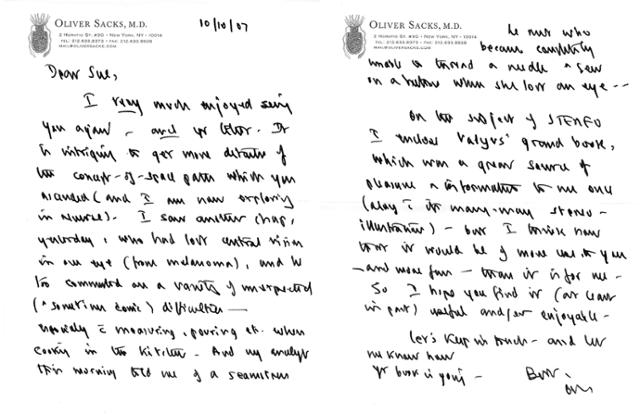 OLIVER SACKS, M.D.
2 HORATIO ST. #3G • NEW YORK, NY • 10014
TEL: 212.633.8373 • FAX: 212.633.8928
MAIL@OLIVERSACKS.COM
10/10/07
Dear Sue,
I very much enjoyed seeing
you again - and yr letter. It
is intriguing to get more details of
the concept-of-space path which you
ascended (and I am now exploring
in reverse). I saw another chap,
yesterday, who had lost central vision
in one eye (from melanoma), and he
too commented on a variety of unexpected
(+ sometimes comic) difficulties —
especially in measuring, pouring etc. when
cooking in the kitchen. And my analyst
this morning told me of a seamstress
OLIVER SACKS, M.D.
2 HORATIO ST. #3G • NEW YORK, NY • 10014
TEL: 212.633.8373 • FAX: 212.633.8928
MAIL@OLIVERSACKS.COM
he met who
became completely
unable to thread a needle + sew
on a button when she lost an eye --
On the subject of STEREO
I enclose Valyus' grand book,
which was a great source of
pleasure + information to me once
(alas, its many-many stereo-
illustrations) - but I think now
that it would be of more use to you
- and more fun - than it is for me -
So I hope you find it (at least
in part) useful and/or enjoyable -
Let's keep in touch - and let
me know how
yr book is going -
Best,